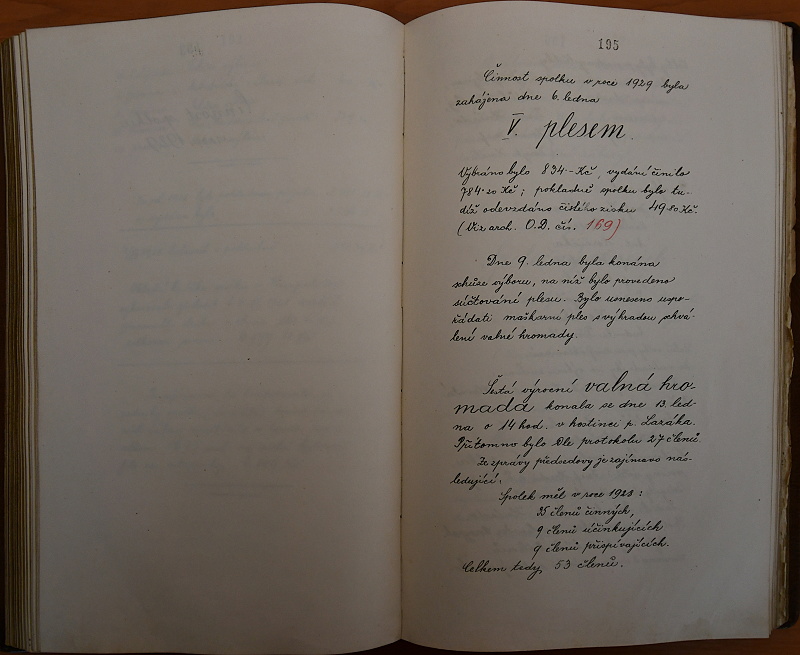 195
Činnost spolku v roce 1929 byla
zahájena dne 6. ledna
V. plesem.
Vybráno bylo 834·– Kč, vydání činilo
784·20 Kč; pokladně spolku bylo tu-
díž odevzdáno čistého zisku 49·80 Kč.
(Viz arch. O.D. čís. 169)
Dne 9. ledna byla konána
schůze výboru, na níž bylo provedeno
súčtování plesu. Bylo usneseno uspo-
řádati maškarní ples s výhradou schvá-
lení valné hromady.
Šestá výroční valná hro-
mada konala se dne 13. led-
na o 14 hod. v hostinci p. Lazáka.
Přítomno bylo dle protokolu 27 členů.
Ze zprávy předsedovy je zajímavo nás-
ledující:
Spolek měl v roce 1928:
35 členů činných,
9 členů účinkujících
9 členů přispívajících.
Celkem tedy 53 členů.